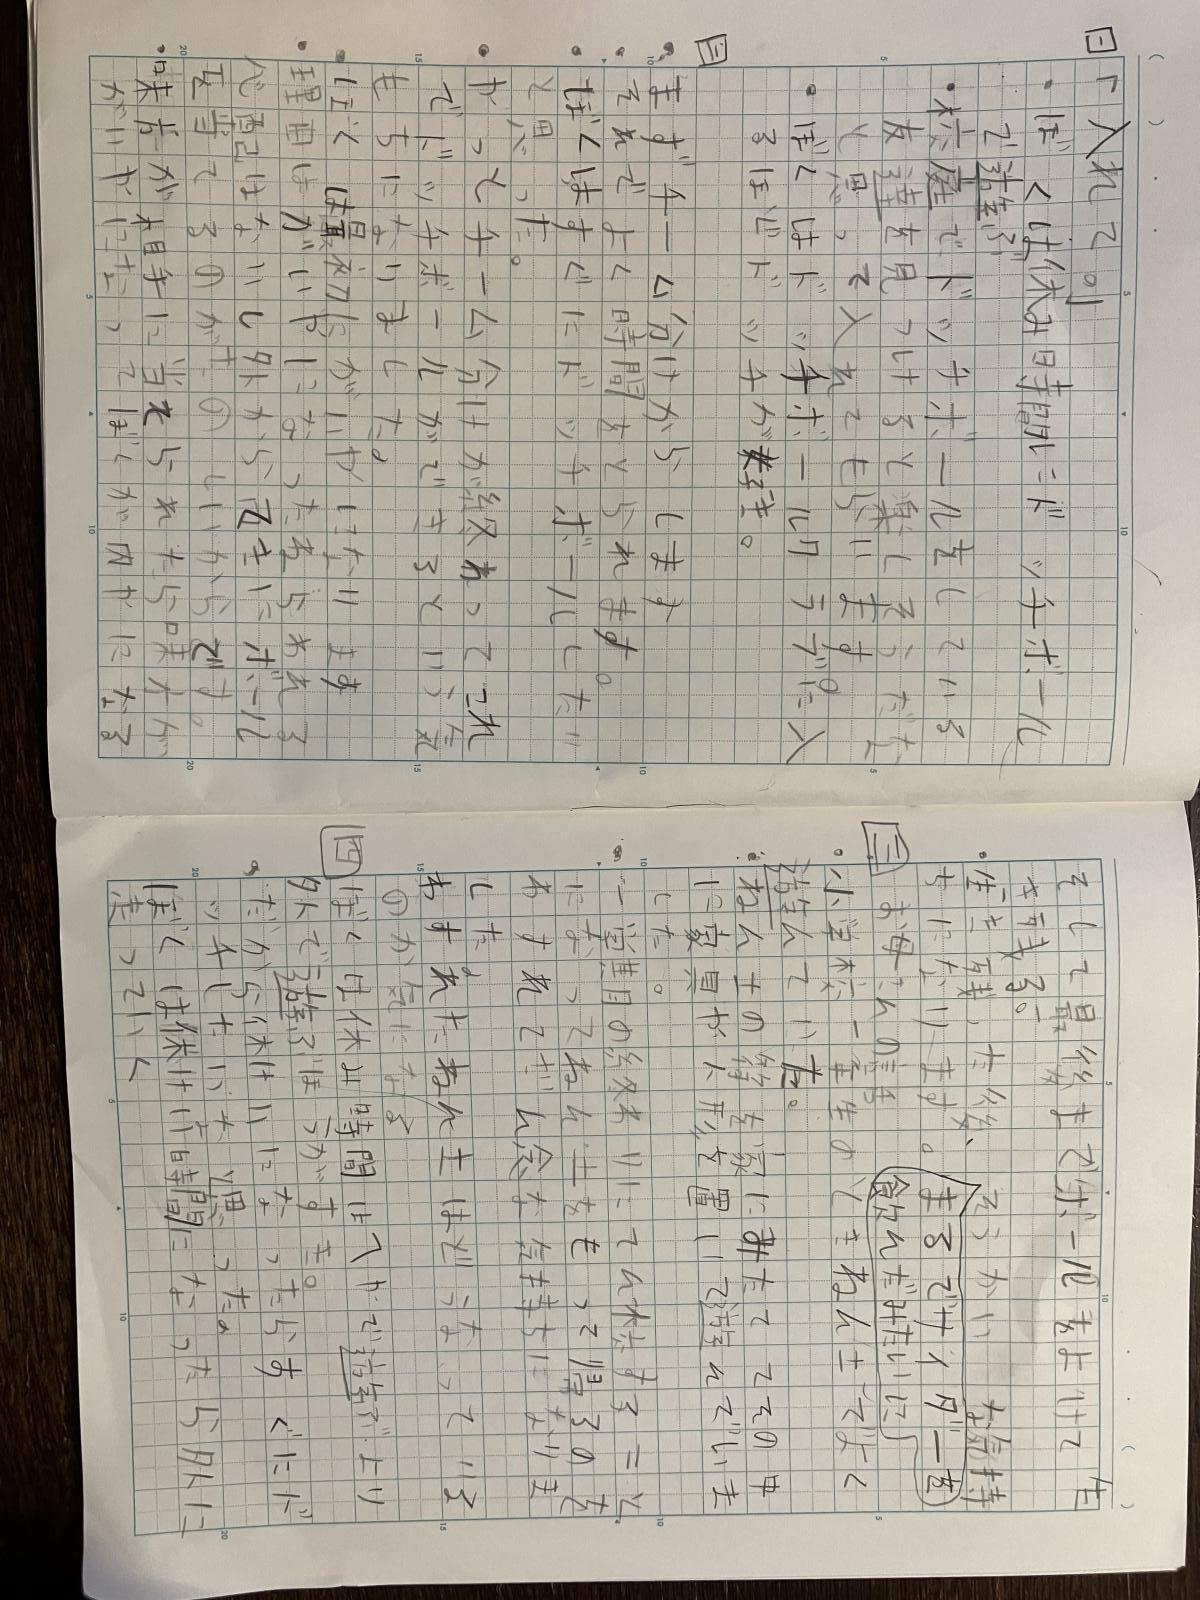 一
「入れて。」
・ぼくは休み時間にドッチボール
で遊ぶ
・校庭でドッチボールをしている
友達を見つけると楽しそうだな
と思って入れてもらいます。
・ぼくはドッチボールのうデに入
るほどドッチが好き。
二
まずチーム分けからします
それでよく時間をとられます。
ぼくはすぐにドッチボールしたい
と思った。
やっとチーム分けが終わってこれ
でドッチボールができるという気
もちになりました。
ぼくは最初たがいやにたります
理由はがいやになったあられる
心配はないし外から元きにボール
を当てるのがたのしいからです。
味方が相手に当てられたら味方が
がいやに立ってぼくが内やに立る
そして最後までボールをよけて生
き残る。
生き残った後、そうかい な気持
ちになります。まるでサイダーを
飲んだみたいに
三
お母さんの言
小学校一年生のときねん土でよく
遊んでいた。
ねん土の箱を家にみたててその中
に家具か人形を置いて遊んでいま
した。
一学期の終わりにてん校すること
になってねん土をもって帰るのを
わすれてざんねんな気持ちになりま
した。
わすれたねん土はどうなっている
のか気になる
四
ぼくは休み時間はへやで遊ぶより
外で遊ぶほうがすき。
だから休けいになったらすぐにド
ッチしたいなと思った。
ぼくは休けい時間になったら外に
走っていく